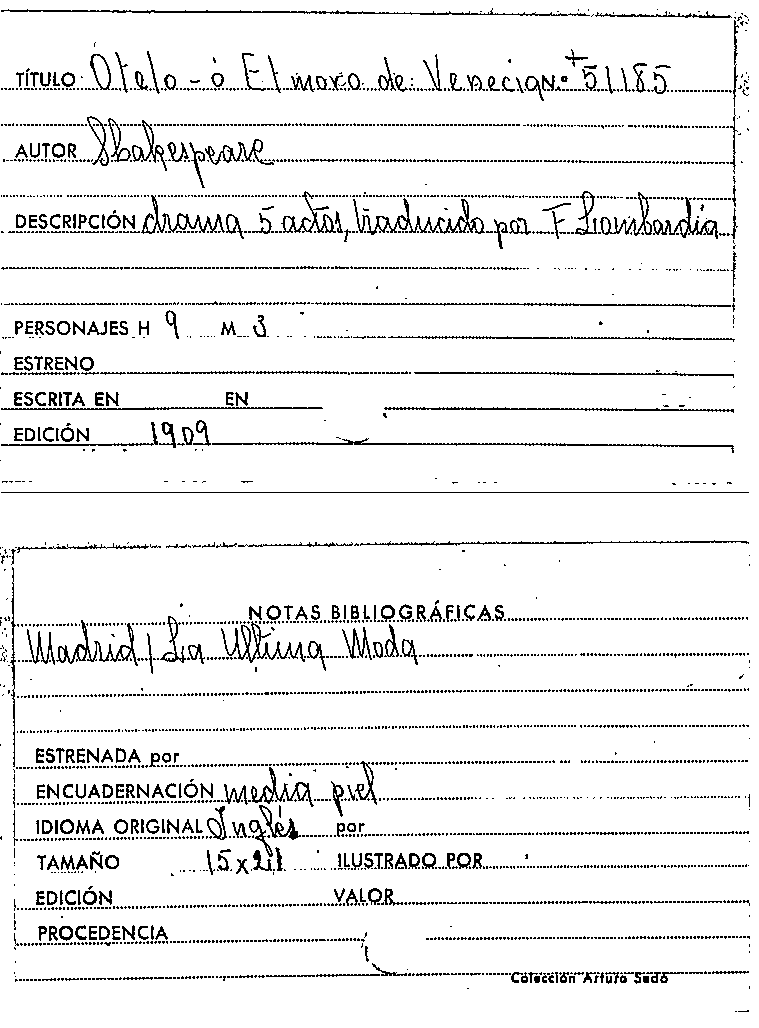 TÍTULO Otelo - ó El moro de Venecia N.º + 51185
AUTOR Shakespeare
DESCRIPCIÓN drama 5 actos, traducido por F Lombardía
PERSONAJES H 9 M 3
ESTRENO
ESCRITA EN EN
EDICIÓN 1909
NOTAS BIBLIOGRÁFICAS
Madrid / La Ultima Moda
ESTRENADA por
ENCUADERNACIÓN media piel
IDIOMA ORIGINAL Inglés por
TAMAÑO 15 x 21 ILUSTRADO POR
EDICIÓN VALOR
PROCEDENCIA
Colección Arturo Sedó